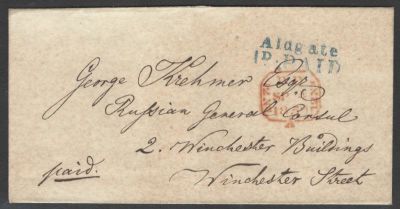 Aldgate
1P. PAID
George Krehmer Esqr.
Russian General Consul
2. Winchester Buildings
Winchester Street
paid.